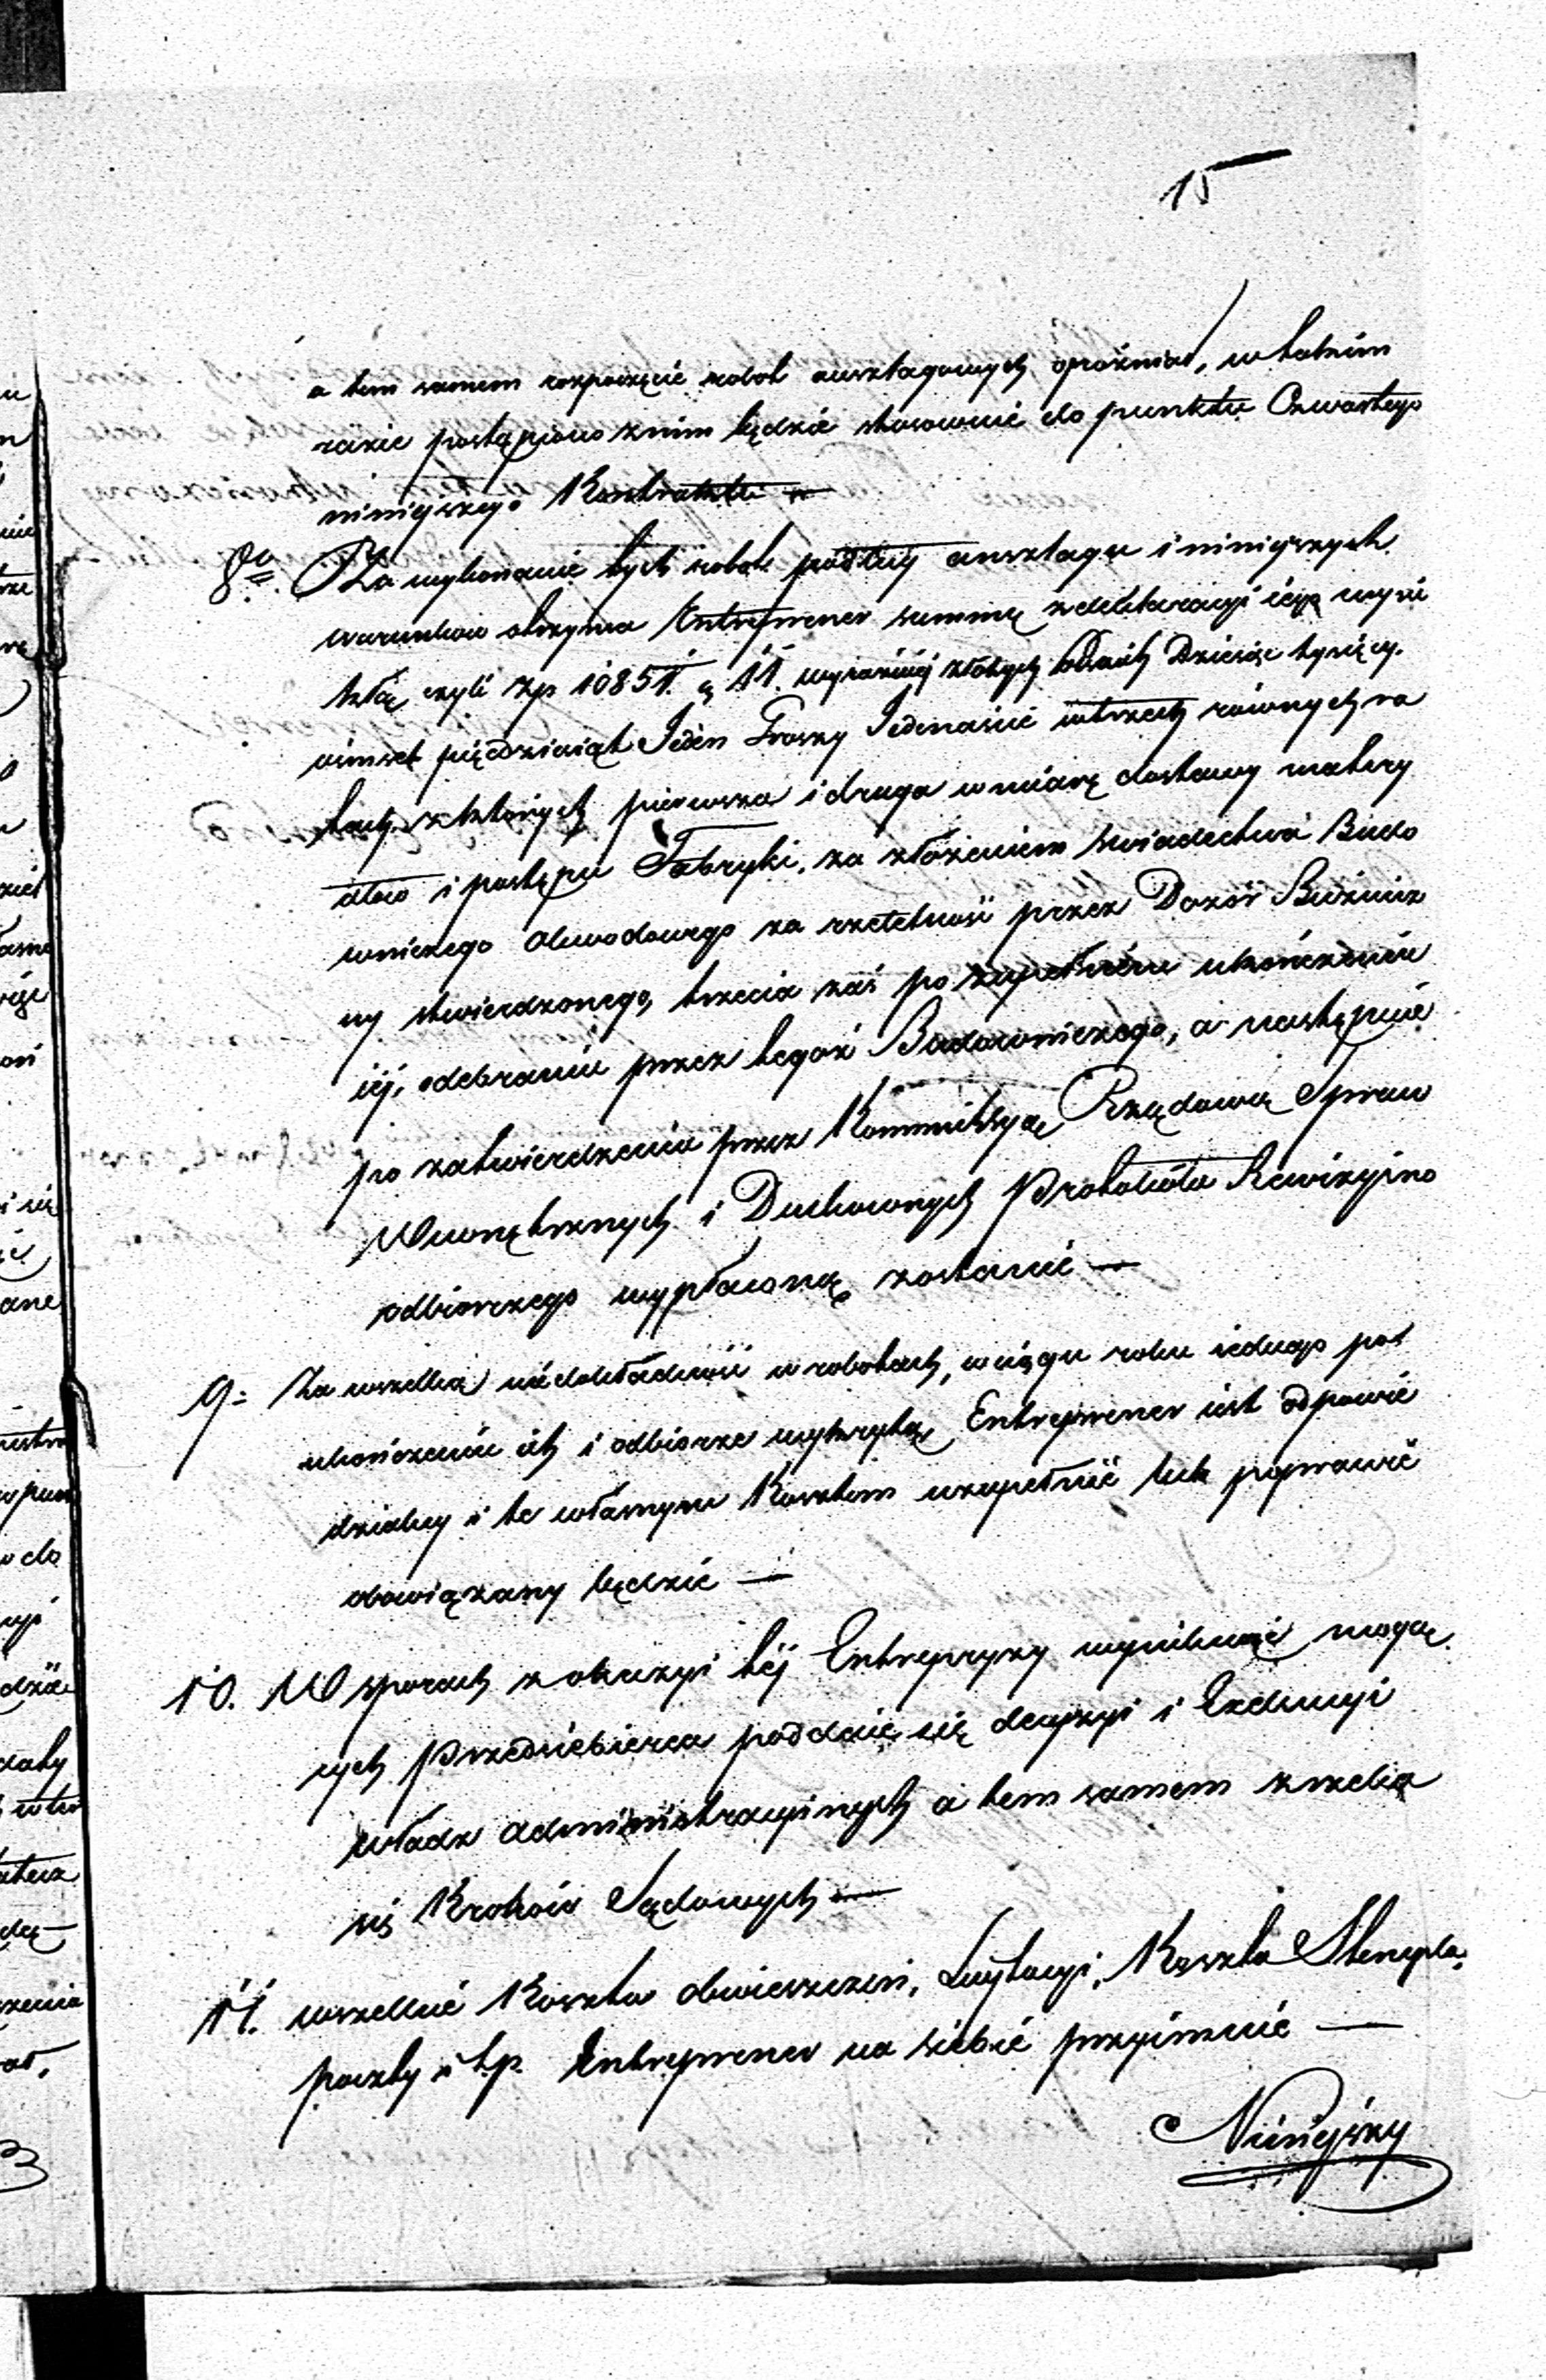 15
a tem samem rozpoczęcie robot anszlagowych opóźniał, w takim
razie postąpiono z nim będzie stosownie do punktu Czwartego
niniejszego Kontraktu —
8vo. Za wykonanie tych robot podług anszlagu i niniejszych
warunkow otrzyma Entreprener summę z deklaracyi iego wyni
kłą czyli Zp 10851. g 11. wyraźniej złotych Polskich Dziesięc tysięcy.
ośmset pięćdziesiąt Jeden Groszy Jedenaście w trzech równych ra
tach, z których pierwsza i druga w miarę dostawy matery
ałow i postępu Fabryki, za złożeniem swiadectwa Budo
wniczego Obwodowego za rzetelność przez Dozór Bużnicz
ny stwierdzonego, trzecia zaś po zupełném ukończeniu
iéj, odebraniu przez tegoż Budowniczego, a następnie
po zatwierdzeniu przez Kommissyą Rządową Spraw
Wewnętrznych i Duchownych Protokółu Rewizyino
odbiorczego wypłaconą zostanie —
9. Za wszelką niedokładność w robotach, w ciągu roku iednego po
ukończeniu ich i odbiorze wykrytą, Entreprener iest odpowie
dzialny i te własnym Kosztem uzupełnić lub poprawić
obowiązany będzie —
10. W sporach z okazyi téj Entrepryzy wyniknąć mogą
cych Przedsiębierca poddaie się decyzyi i Exekucyi
władz administracyinych a tem samem zrzeka
się Kroków Sądowych —
11. wszelkie Koszta obwieszczeń, Licytacyi, Koszta Stempla,
poczty i t.p. Entreprener na siebie przyimuie —
Ninieyszy